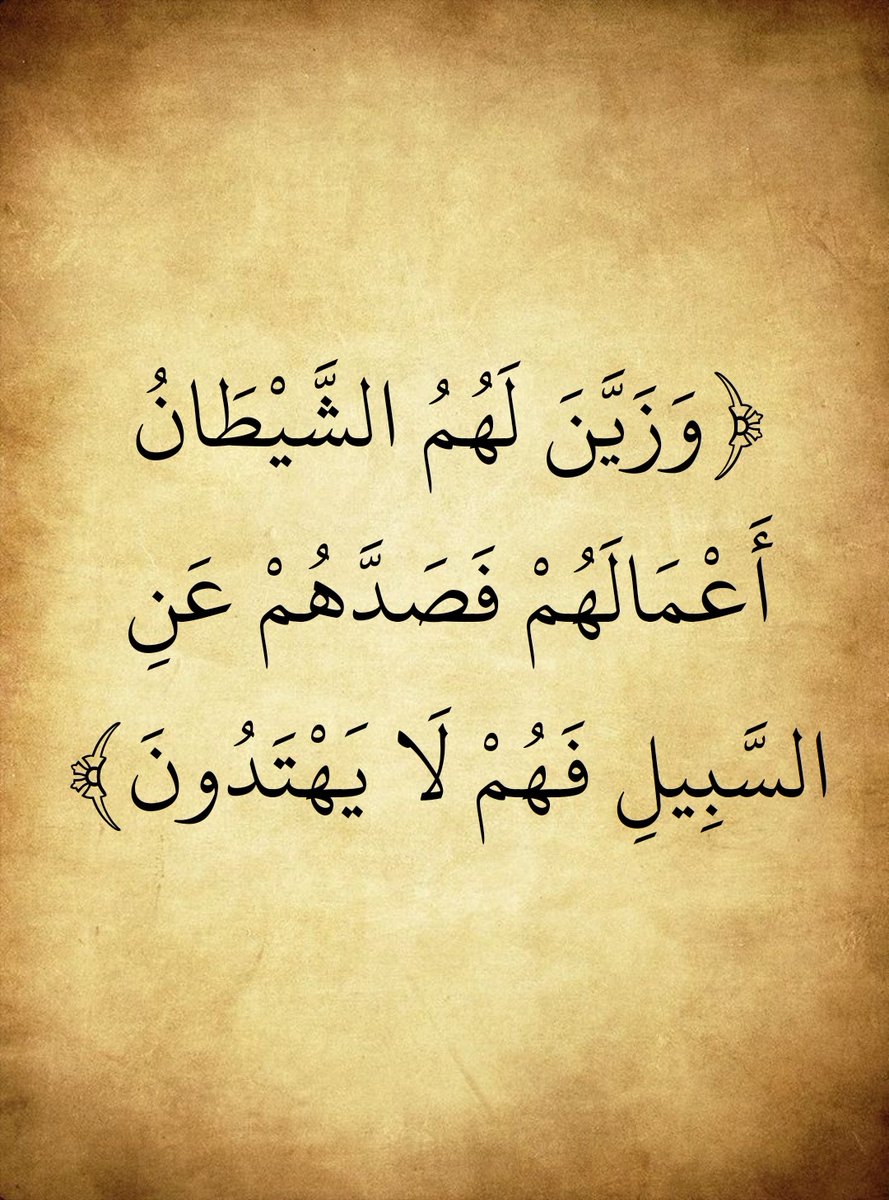 ﴿وَزَيَّنَ لَهُمُ الشَّيْطَانُ
أَعْمَالَهُمْ فَصَدَّهُمْ عَنِ
السَّبِيلِ فَهُمْ لَا يَهْتَدُونَ﴾